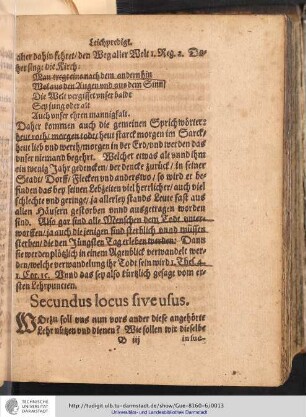 Leichpredigt.
alher dahin kehret / den Weg aller Welt 1. Reg. 2. Da-
her singt die Kirch:
Man tregt eins nach dem andern hin
Wol aus den Augen und aus dem Sinn /
Die Welt vergisset unser baldt
Sey jung oder alt
Auch unser ehren mannigfalt.
Daher kommen auch die gemeinen Sprichwörter:
heut roth / morgen todt / heut starck morgen im Sarck /
heut lieb vnd werth / morgen in der Erd / vnd werden das
vnser niemand begehrt. Welcher etwas alt vnnd ihm
ein wenig Jahr gedencken / der dencke zurück / in seiner
Stadt Dorff / Flecken vnd anderswo / so wird er be-
finden das bey seinen Lebzeiten viel herrlicher / auch viel
schlechte vnd geringe / ja allerley stands Leute fast aus
allen Häusern gestorben vnnd ausgetragen worden
sind. Also gar sind alle Menschen dem Todt unter-
worffen / ja auch die jenigen sind sterblich vnnd müssen
sterben / die den Jüngsten Tag erleben werden: Dann
sie werden plötzlich in einem Agenblick verwandelt wer-
den / welche verwandelung ihr Todt sein wird 1. Thes. 4.
1. Cor. 15. Vnnd das sey also kürtzlich gesagt vom er-
sten Lehrpuncten.
Secundus locus sive usus.
WOrzu soll vns nun vors ander diese angehörte
Lehr nützen vnd dienen? Wie sollen wir dieselbe
D iij
TECHNISCHE
UNIVERSITÄT
DARMSTADT
http://tudigit.ulb.tu-darmstadt.de/show/Gue-8160-6/0013
Universitäts- und Landesbibliothek Darmstadt